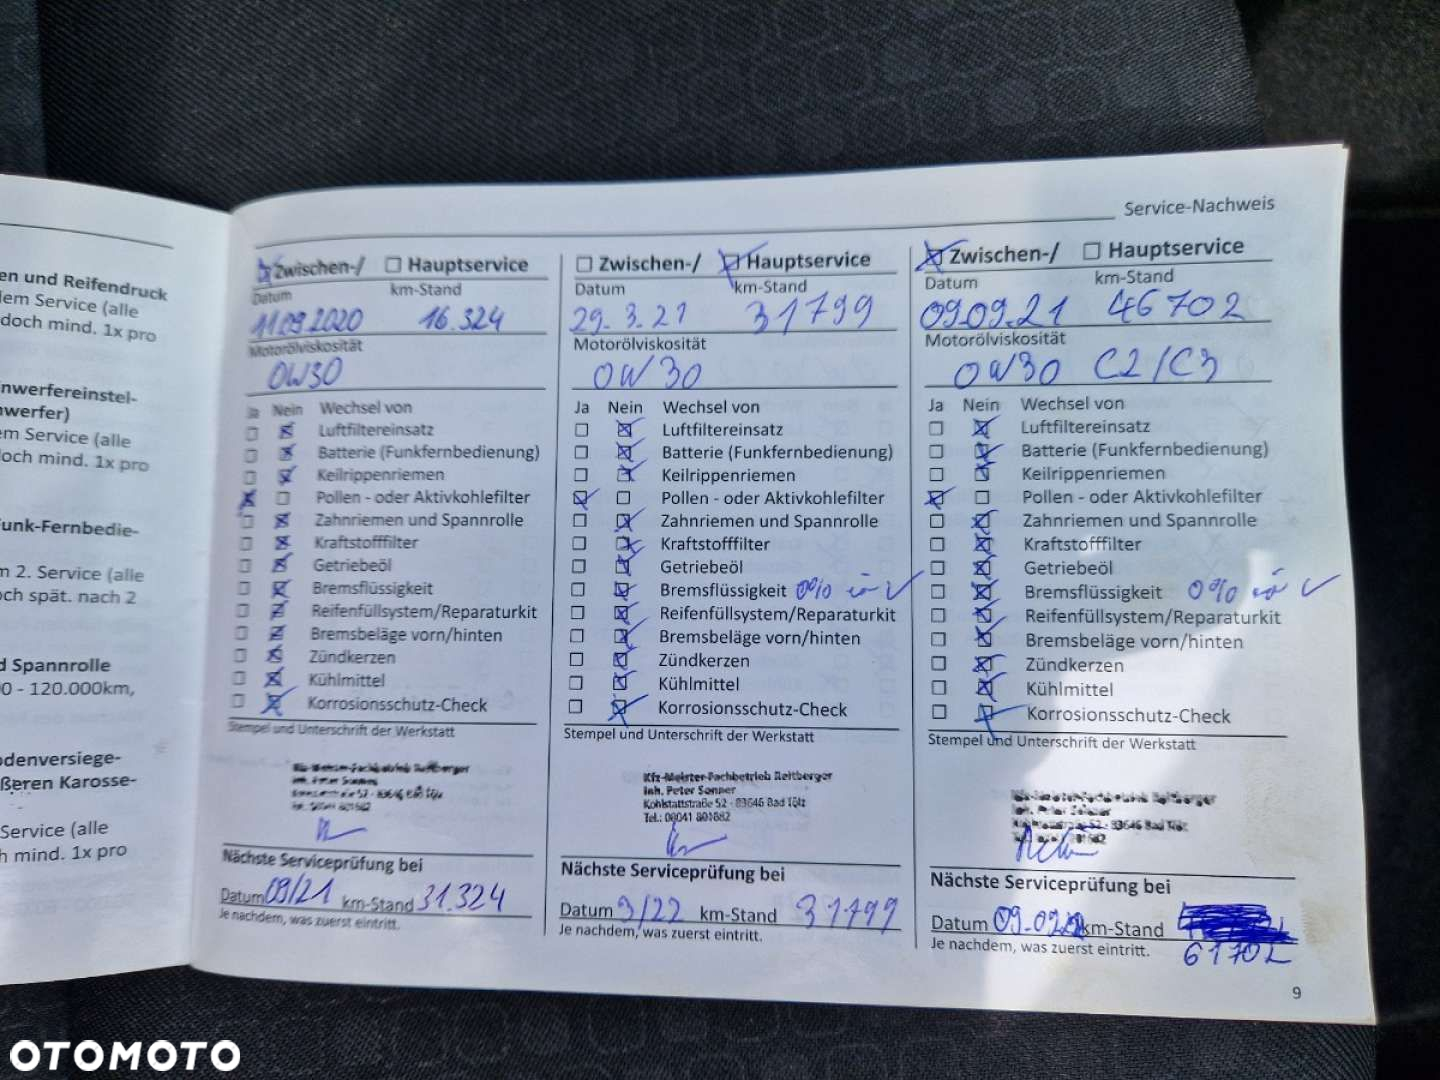 en und Reifendruck
dem Service (alle
doch mind. 1x pro
nwerfereinstel-
nwerfer)
em Service (alle
doch mind. 1x pro
Funk-Fernbedie-
m 2. Service (alle
och spät. nach 2
d Spannrolle
0 - 120.000km,
odenversiege-
ßeren Karosse-
Service (alle
h mind. 1x pro
Service-Nachweis
Zwischen-/ Hauptservice
Datum km-Stand
11.09.2020 16.324
Motorölviskosität
0W30
Ja Nein Wechsel von
Luftfiltereinsatz
Batterie (Funkfernbedienung)
Keilrippenriemen
Pollen - oder Aktivkohlefilter
Zahnriemen und Spannrolle
Kraftstofffilter
Getriebeöl
Bremsflüssigkeit
Reifenfüllsystem/Reparaturkit
Bremsbeläge vorn/hinten
Zündkerzen
Kühlmittel
Korrosionsschutz-Check
Stempel und Unterschrift der Werkstatt
Nächste Serviceprüfung bei
Datum 09/21 km-Stand 31.324
Je nachdem, was zuerst eintritt.
Zwischen-/ Hauptservice
Datum km-Stand
29.3.21 31799
Motorölviskosität
0W30
Ja Nein Wechsel von
Luftfiltereinsatz
Batterie (Funkfernbedienung)
Keilrippenriemen
Pollen - oder Aktivkohlefilter
Zahnriemen und Spannrolle
Kraftstofffilter
Getriebeöl
Bremsflüssigkeit 0%
Reifenfüllsystem/Reparaturkit
Bremsbeläge vorn/hinten
Zündkerzen
Kühlmittel
Korrosionsschutz-Check
Stempel und Unterschrift der Werkstatt
Kfz-Meister-Fachbetrieb Reitberger
Inh. Peter Sonner
Kohlstattstraße 52 - 83646 Bad Tölz
Tel.: 08041 801682
Nächste Serviceprüfung bei
Datum 3/22 km-Stand 31799
Je nachdem, was zuerst eintritt.
Zwischen-/ Hauptservice
Datum km-Stand
09.09.21 46702
Motorölviskosität
0W30 C2/C3
Ja Nein Wechsel von
Luftfiltereinsatz
Batterie (Funkfernbedienung)
Keilrippenriemen
Pollen - oder Aktivkohlefilter
Zahnriemen und Spannrolle
Kraftstofffilter
Getriebeöl
Bremsflüssigkeit 0%
Reifenfüllsystem/Reparaturkit
Bremsbeläge vorn/hinten
Zündkerzen
Kühlmittel
Korrosionsschutz-Check
Stempel und Unterschrift der Werkstatt
52 - 83646 Bad Tölz
Nächste Serviceprüfung bei
Datum km-Stand
61702
Je nachdem, was zuerst eintritt.
9
OTOMOTO